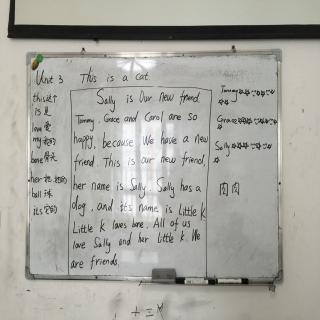 Unit 3 This is a cat.
this 这个
is 是
love 爱
my 我的
bone 骨头
her 她的
ball 球
its 它的
Sally is Our new friend.
Tommy, Grace and Carol are so
happy, because We have a new
friend. This is our new friend,
her name is Sally. Sally has a
dog, and its name is Little K
Little K loves bone. All of us
love Sally and her little K. We
are friends.
Tommy
Grace
Sally